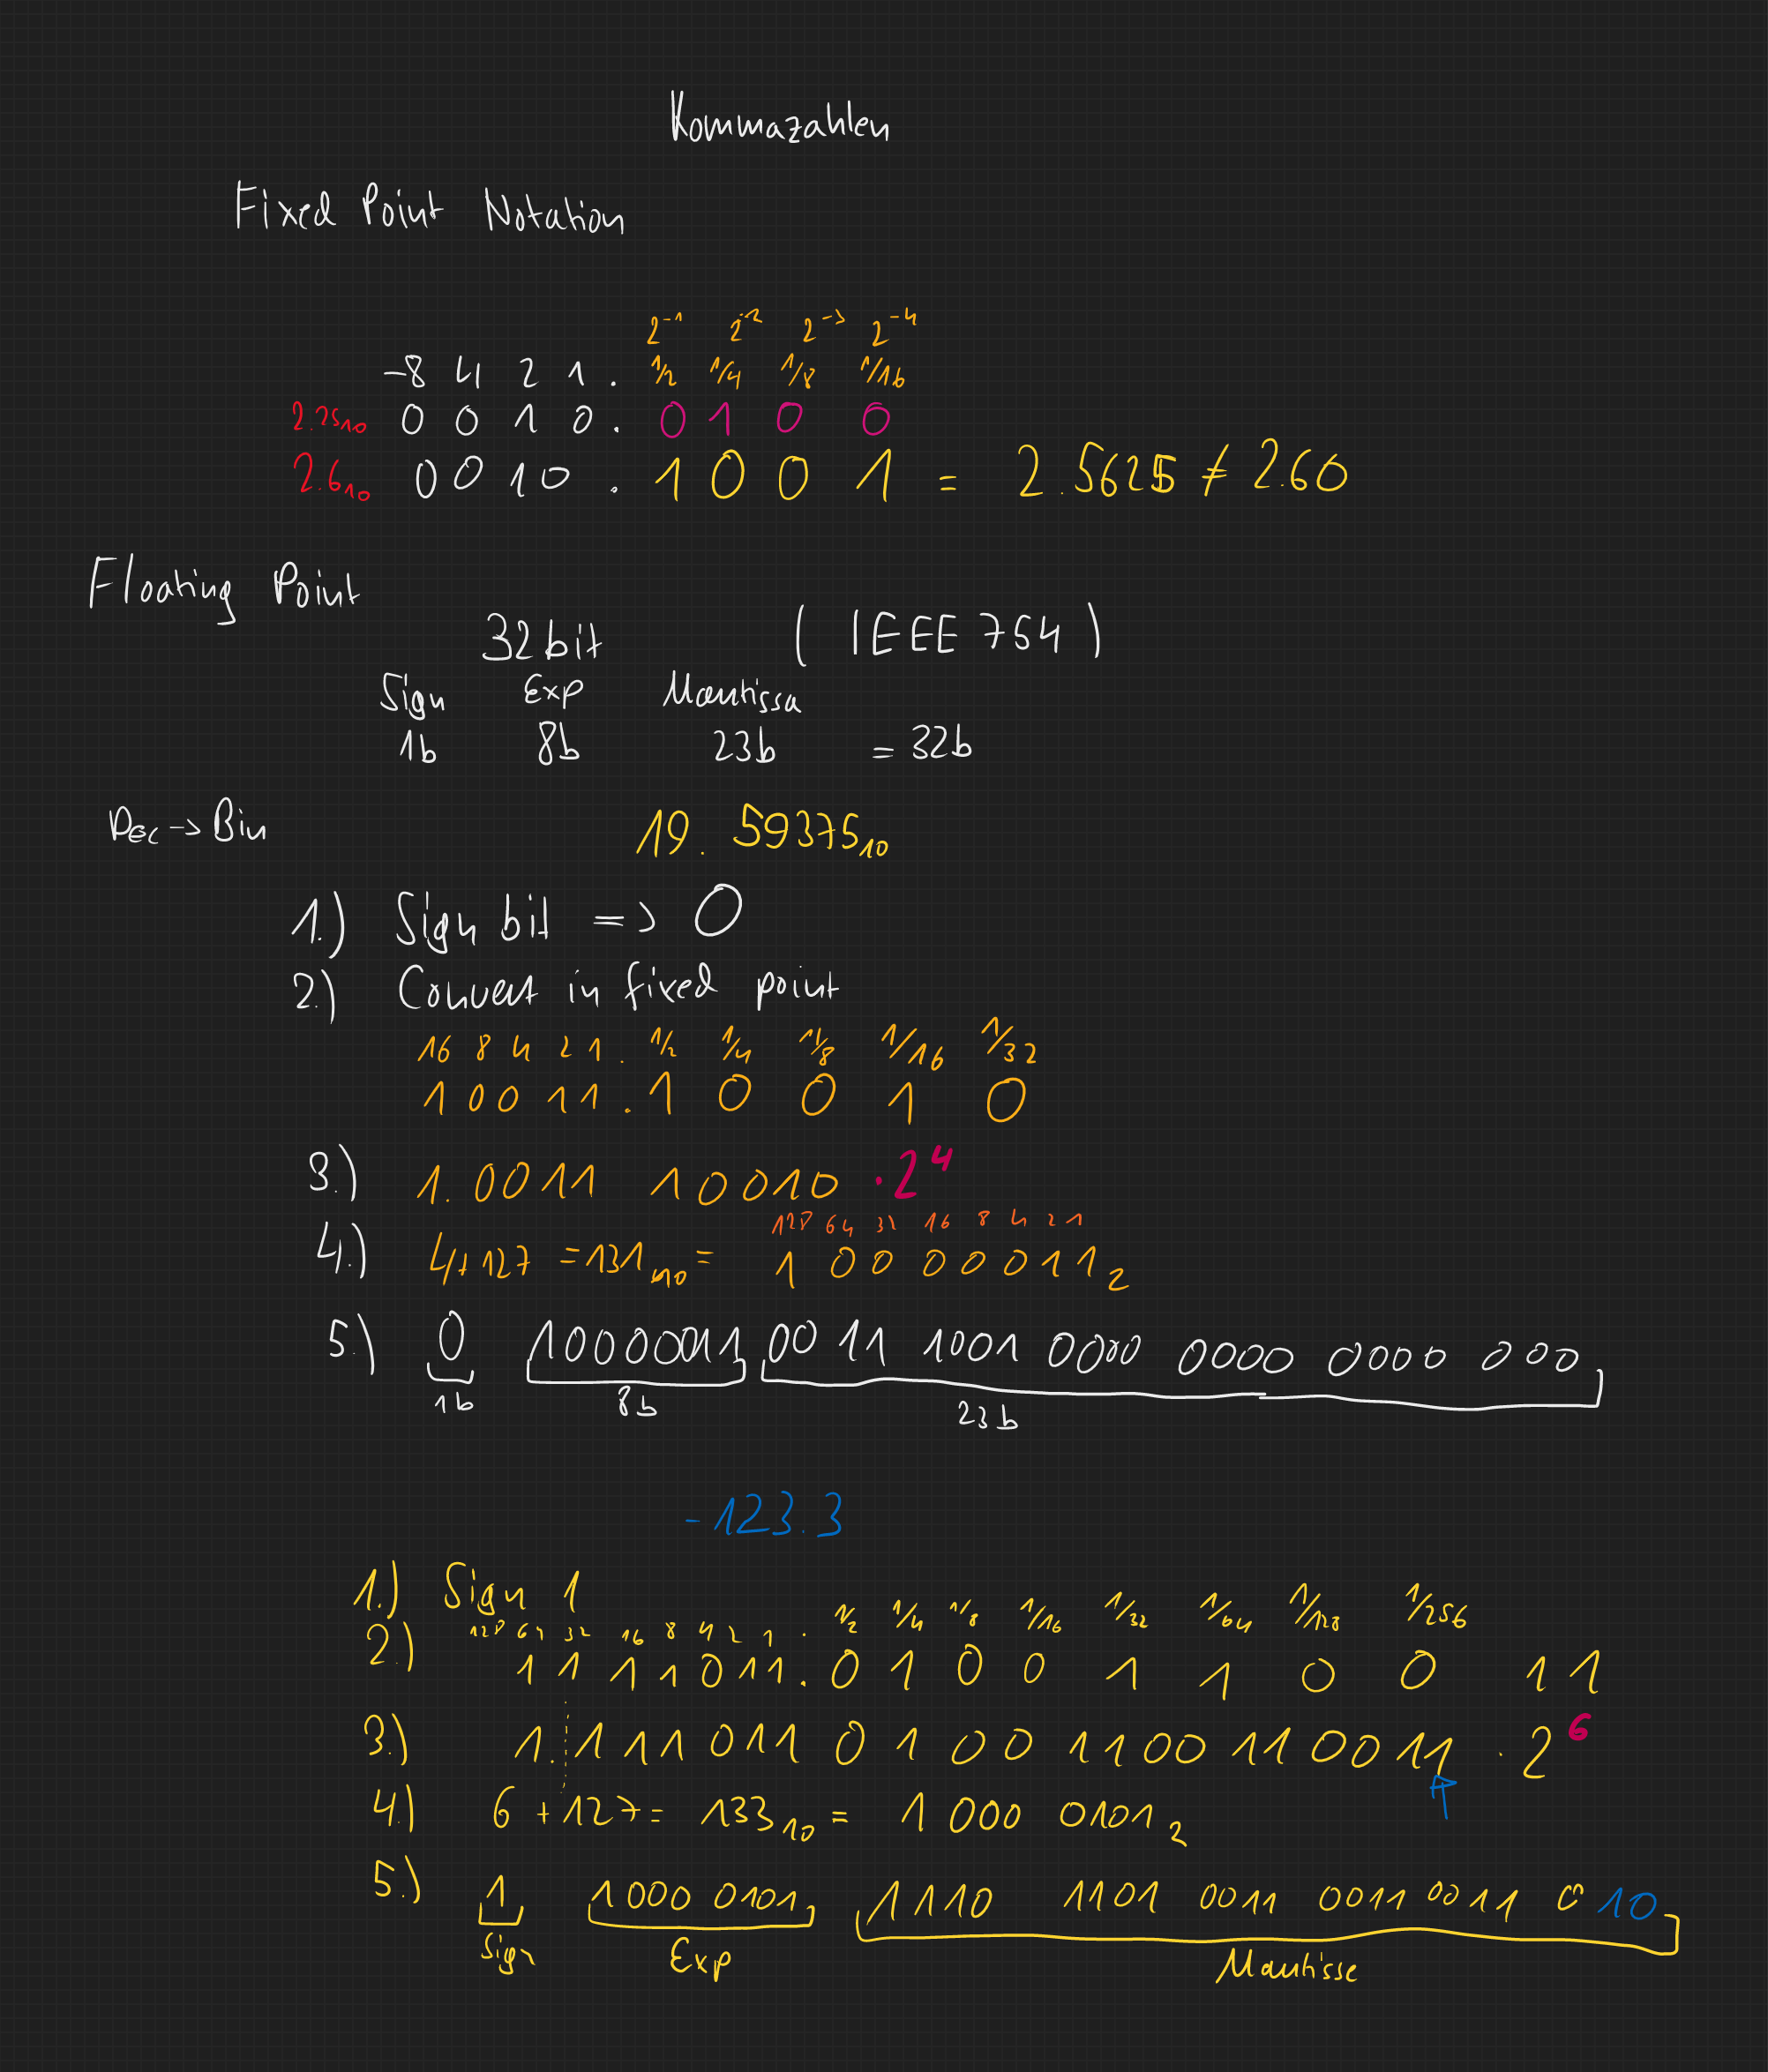 Kommazahlen
Fixed Point Notation
2⁻¹ 2⁻² 2⁻³ 2⁻⁴
-8 4 2 1 . 1/2 1/4 1/8 1/16
2.25₁₀ 0 0 1 0 . 0 1 0 0
2.6₁₀ 0 0 1 0 . 1 0 0 1 = 2.5625 ≠ 2.60
Floating Point
32bit ( IEEE 754 )
Sign Exp Mantissa
1b 8b 23b = 32b
Dec -> Bin 19.59375₁₀
1.) Sign bit => 0
2.) Convert in fixed point
16 8 4 2 1 . 1/2 1/4 1/8 1/16 1/32
1 0 0 1 1 . 1 0 0 1 0
3.) 1.0011 10010 · 2⁴
128 64 32 16 8 4 2 1
4.) 4+127 = 131₁₀ = 1 0 0 0 0 0 1 1₂
5.) 0 10000011 0011 1001 0000 0000 0000 000
1b 8b 23b
-123.3
1.) Sign 1
128 64 32 16 8 4 2 1 . 1/2 1/4 1/8 1/16 1/32 1/64 1/128 1/256
2.) 1 1 1 1 0 1 1 . 0 1 0 0 1 1 0 0 1 1
3.) 1.1 1 1 0 1 1 0 1 0 0 1 1 0 0 1 1 0 0 1 1 · 2⁶
4.) 6 + 127 = 133₁₀ = 1000 0101₂
5.) 1 1000 0101 1110 1101 0011 0011 0011 010
Sign Exp Mantisse